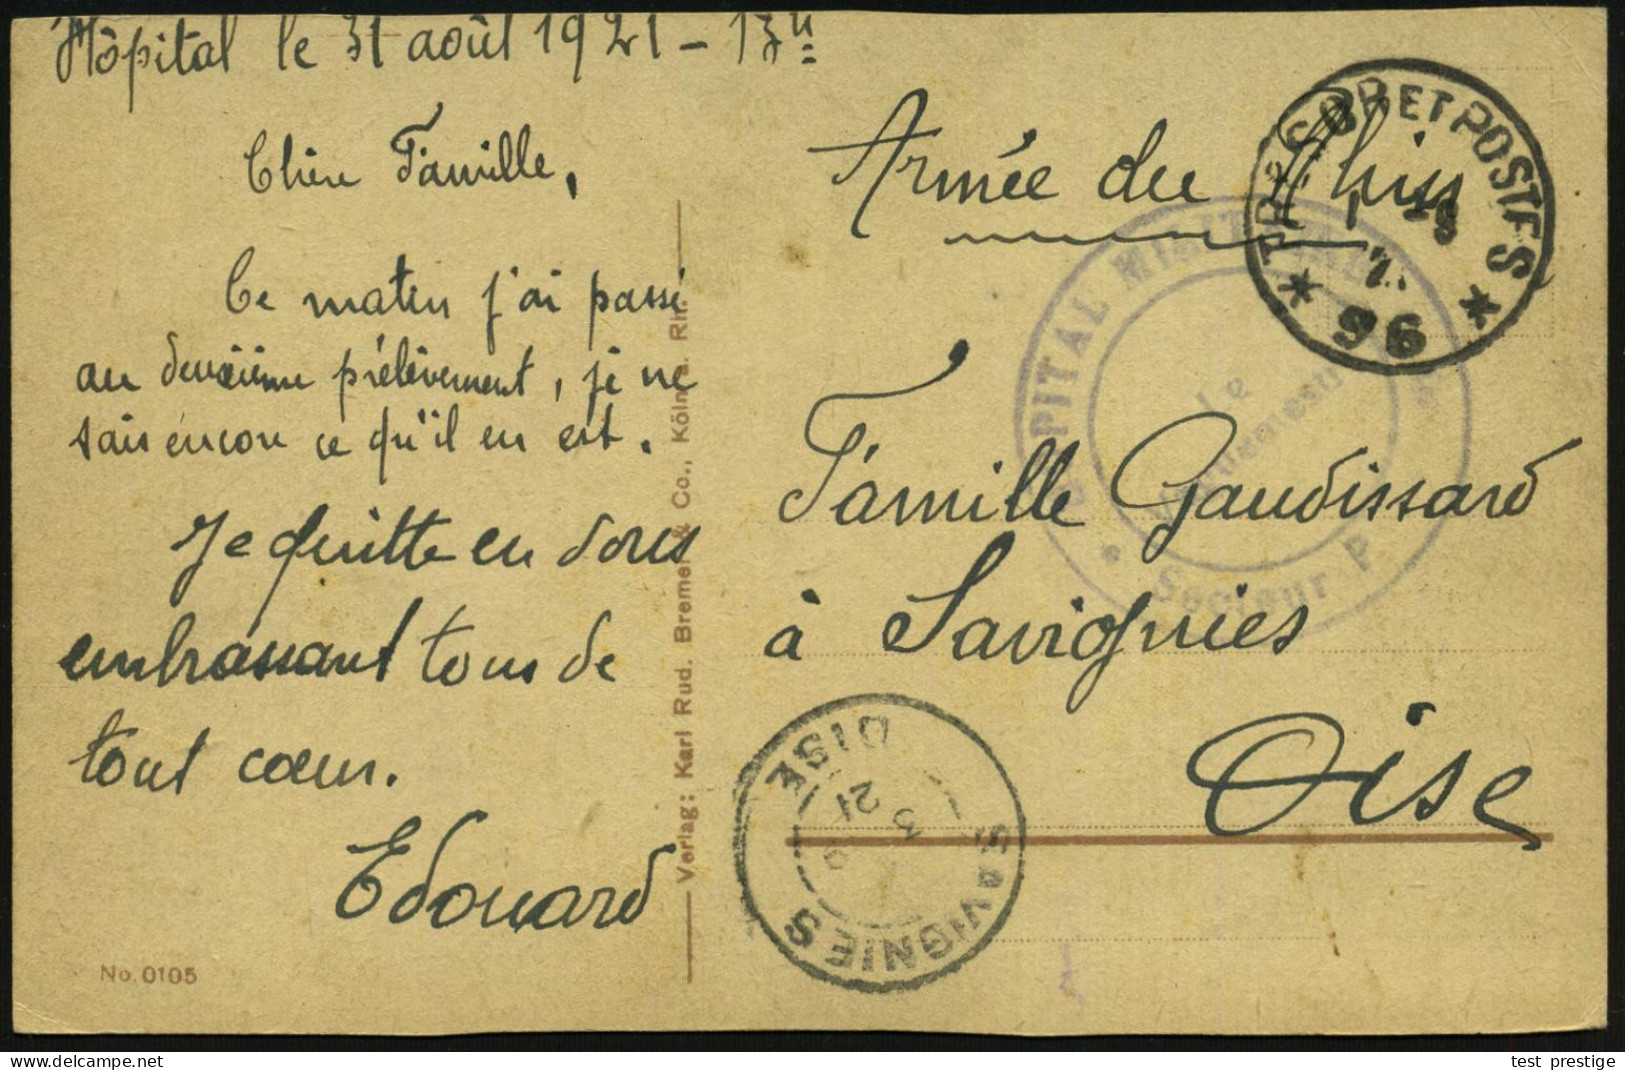 Hôpital le 31 août 1921 - 17h
Chère Famille,
Ce matin j'ai passé
au deuxième prélèvement, je ne
sais encore ce qu'il en est.
Je quitte en vous
embrassant tous de
tout cœur.
Edouard
No. 0105
Verlag: Karl Rud. Bremer & Co., Köln a. Rh.
Armée du Rhin
TRESOR ET POSTES
* 96 *
HOPITAL MILITAIRE
Le
Secteur P.
Famille Gaudissard
à Savignies
Oise
SAVIGNIES
OISE
21
test prestige